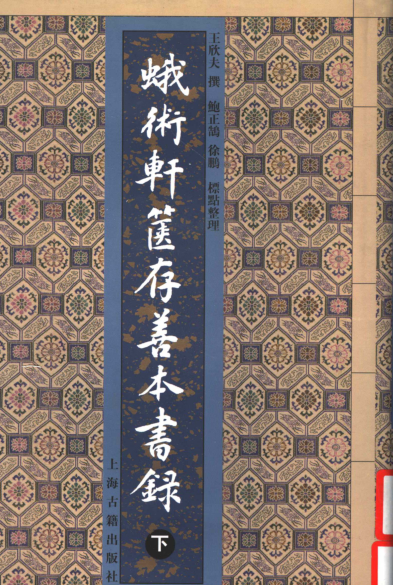 王欣夫 撰 鮑正鵠 徐鵬 標點整理
蛾術軒篋存善本書録
下
上海古籍出版社